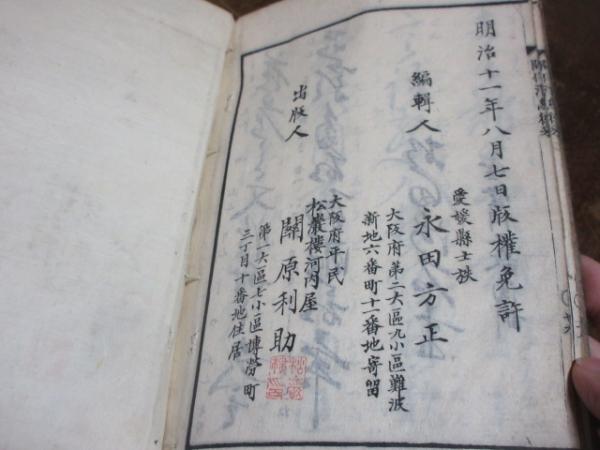 明治十一年八月七日版權免許
愛媛縣士族
編輯人 永田方正
大阪府第二大區九小區難波
新地六番町十一番地寄留
大阪府平民
松巖樓河内屋
出版人 關原利助
第一大區七小區博勞町
三丁目十番地住居